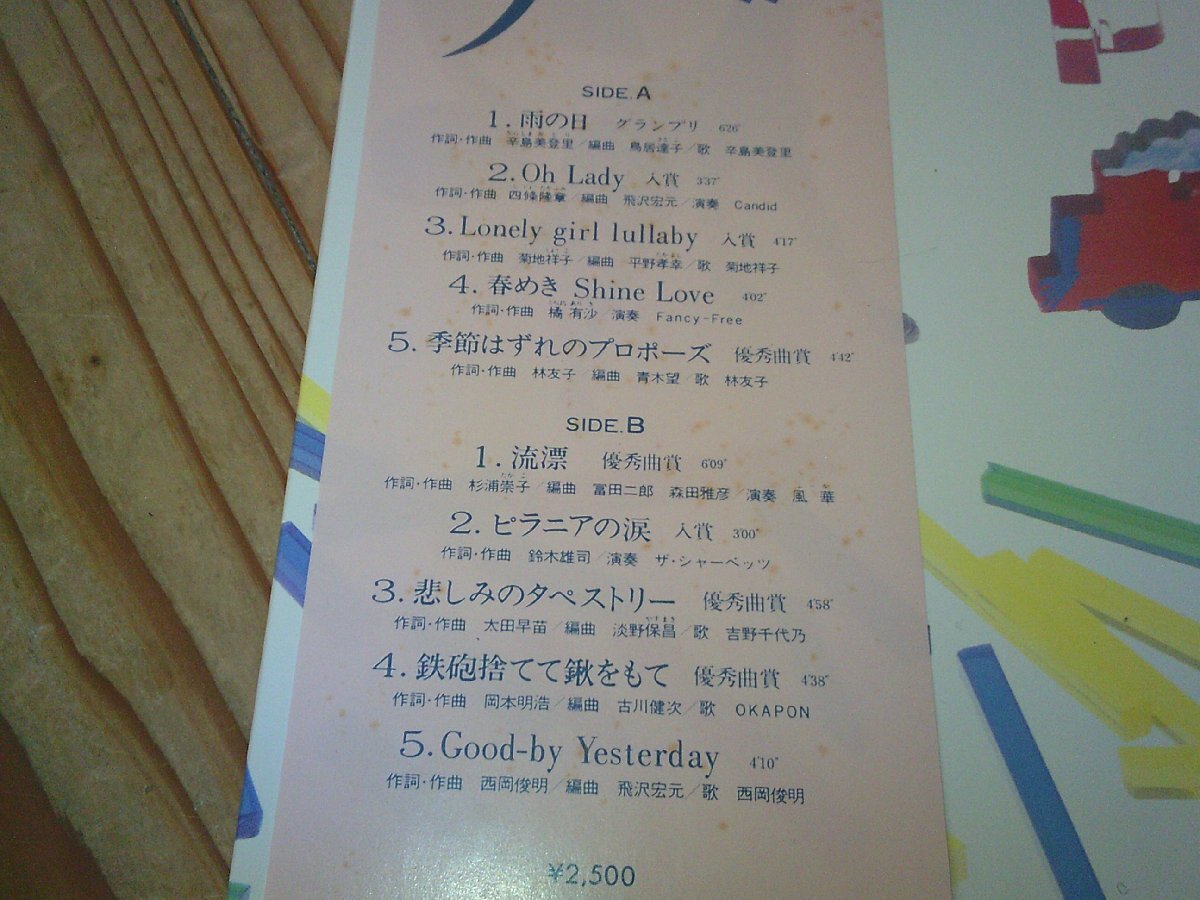 SIDE.A
1.雨の日 グランプリ 6'26"
作詞・作曲 辛島美登里/編曲 鳥居達子/歌 辛島美登里
2.Oh Lady 入賞 3'37"
作詞・作曲 四條隆章/編曲 飛沢宏元/演奏 Candid
3.Lonely girl lullaby 入賞 4'17"
作詞・作曲 菊地祥子/編曲 平野孝幸/歌 菊地祥子
4.春めき Shine Love 4'02"
作詞・作曲 橘 有沙/演奏 Fancy-Free
5.季節はずれのプロポーズ 優秀曲賞 4'42"
作詞・作曲 林友子/編曲 青木望/歌 林友子
SIDE.B
1.流漂 優秀曲賞 6'09"
作詞・作曲 杉浦崇子/編曲 冨田二郎 森田雅彦/演奏 風 華
2.ピラニアの涙 入賞 3'00"
作詞・作曲 鈴木雄司/演奏 ザ・シャーベッツ
3.悲しみのタペストリー 優秀曲賞 4'58"
作詞・作曲 太田早苗/編曲 淡野保昌/歌 吉野千代乃
4.鉄砲捨てて鍬をもて 優秀曲賞 4'38"
作詞・作曲 岡本明浩/編曲 古川健次/歌 OKAPON
5.Good-by Yesterday 4'10"
作詞・作曲 西岡俊明/編曲 飛沢宏元/歌 西岡俊明
¥2,500